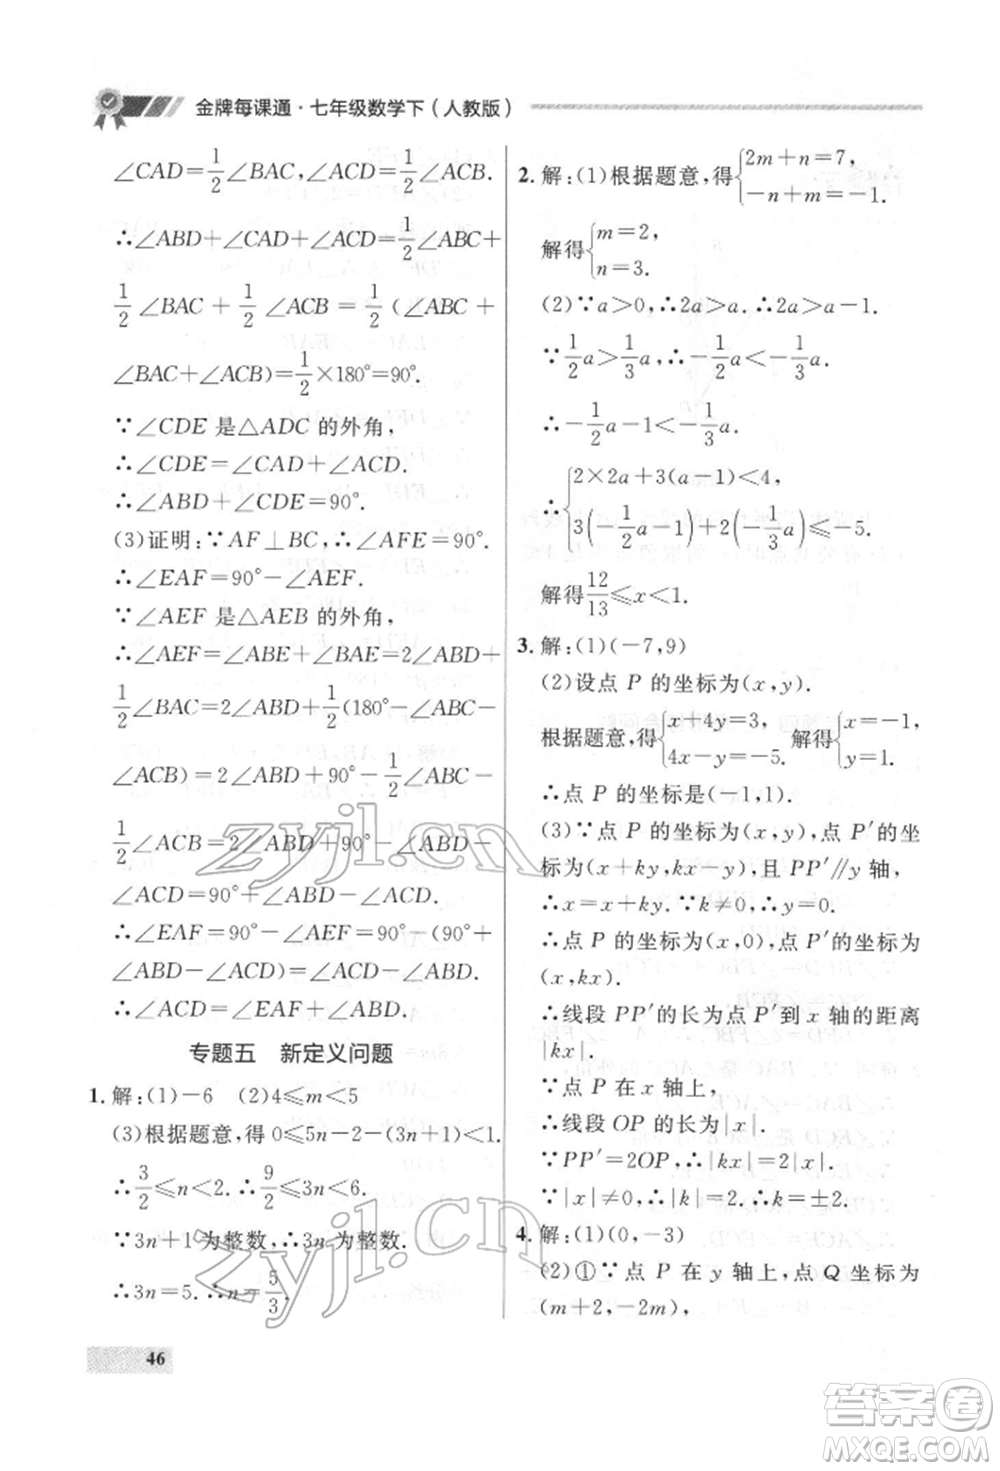 金牌每课通·七年级数学下(人教版)
∠CAD=1/2∠BAC,∠ACD=1/2∠ACB.
∴∠ABD+∠CAD+∠ACD=1/2∠ABC+
1/2∠BAC+1/2∠ACB=1/2(∠ABC+
∠BAC+∠ACB)=1/2×180°=90°.
∵∠CDE是△ADC的外角,
∴∠CDE=∠CAD+∠ACD.
∴∠ABD+∠CDE=90°.
(3)证明:∵AF⊥BC,∴∠AFE=90°.
∴∠EAF=90°-∠AEF.
∵∠AEF是△AEB的外角,
∴∠AEF=∠ABE+∠BAE=2∠ABD+
1/2∠BAC=2∠ABD+1/2(180°-∠ABC-
∠ACB)=2∠ABD+90°-1/2∠ABC-
1/2∠ACB=2∠ABD+90°-∠ABD-
∠ACD=90°+∠ABD-∠ACD.
∴∠EAF=90°-∠AEF=90°-(90°+
∠ABD-∠ACD)=∠ACD-∠ABD.
∴∠ACD=∠EAF+∠ABD.
专题五 新定义问题
1.解:(1)-6 (2)4≤m<5
(3)根据题意,得0≤5n-2-(3n+1)<1.
∴3/2≤n<2.∴9/2≤3n<6.
∵3n+1为整数,∴3n为整数.
∴3n=5.∴n=5/3.
46
2.解:(1)根据题意,得{2m+n=7,
-n+m=-1.
解得{m=2,
n=3.
(2)∵a>0,∴2a>a.∴2a>a-1.
∵1/2a>1/3a,∴-1/2a<-1/3a.
∴-1/2a-1<-1/3a.
∴{2×2a+3(a-1)<4,
3(-1/2a-1)+2(-1/3a)≤-5.
解得12/13≤a<1.
3.解:(1)(-7,9)
(2)设点P的坐标为(x,y).
根据题意,得{x+4y=3, 解得{x=-1,
4x-y=-5. y=1.
∴点P的坐标是(-1,1).
(3)∵点P的坐标为(x,y),点P′的坐
标为(x+ky,kx-y),且PP′∥y轴,
∴x=x+ky.∵k≠0,∴y=0.
∴点P的坐标为(x,0),点P′的坐标为
(x,kx).
∴线段PP′的长为点P′到x轴的距离
|kx|.
∵点P在x轴上,
∴线段OP的长为|x|.
∵PP′=2OP,∴|kx|=2|x|.
∵|x|≠0,∴|k|=2.∴k=±2.
4.解:(1)(0,-3)
(2)①∵点P在y轴上,点Q坐标为
(m+2,-2m),
zyjl.cn
zyjl.cn
答案圈
MXQE.COM